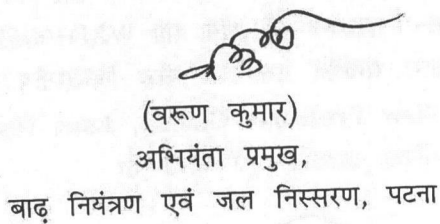 (वरूण कुमार)
अभियंता प्रमुख,
बाढ़ नियंत्रण एवं जल निस्सरण, पटना